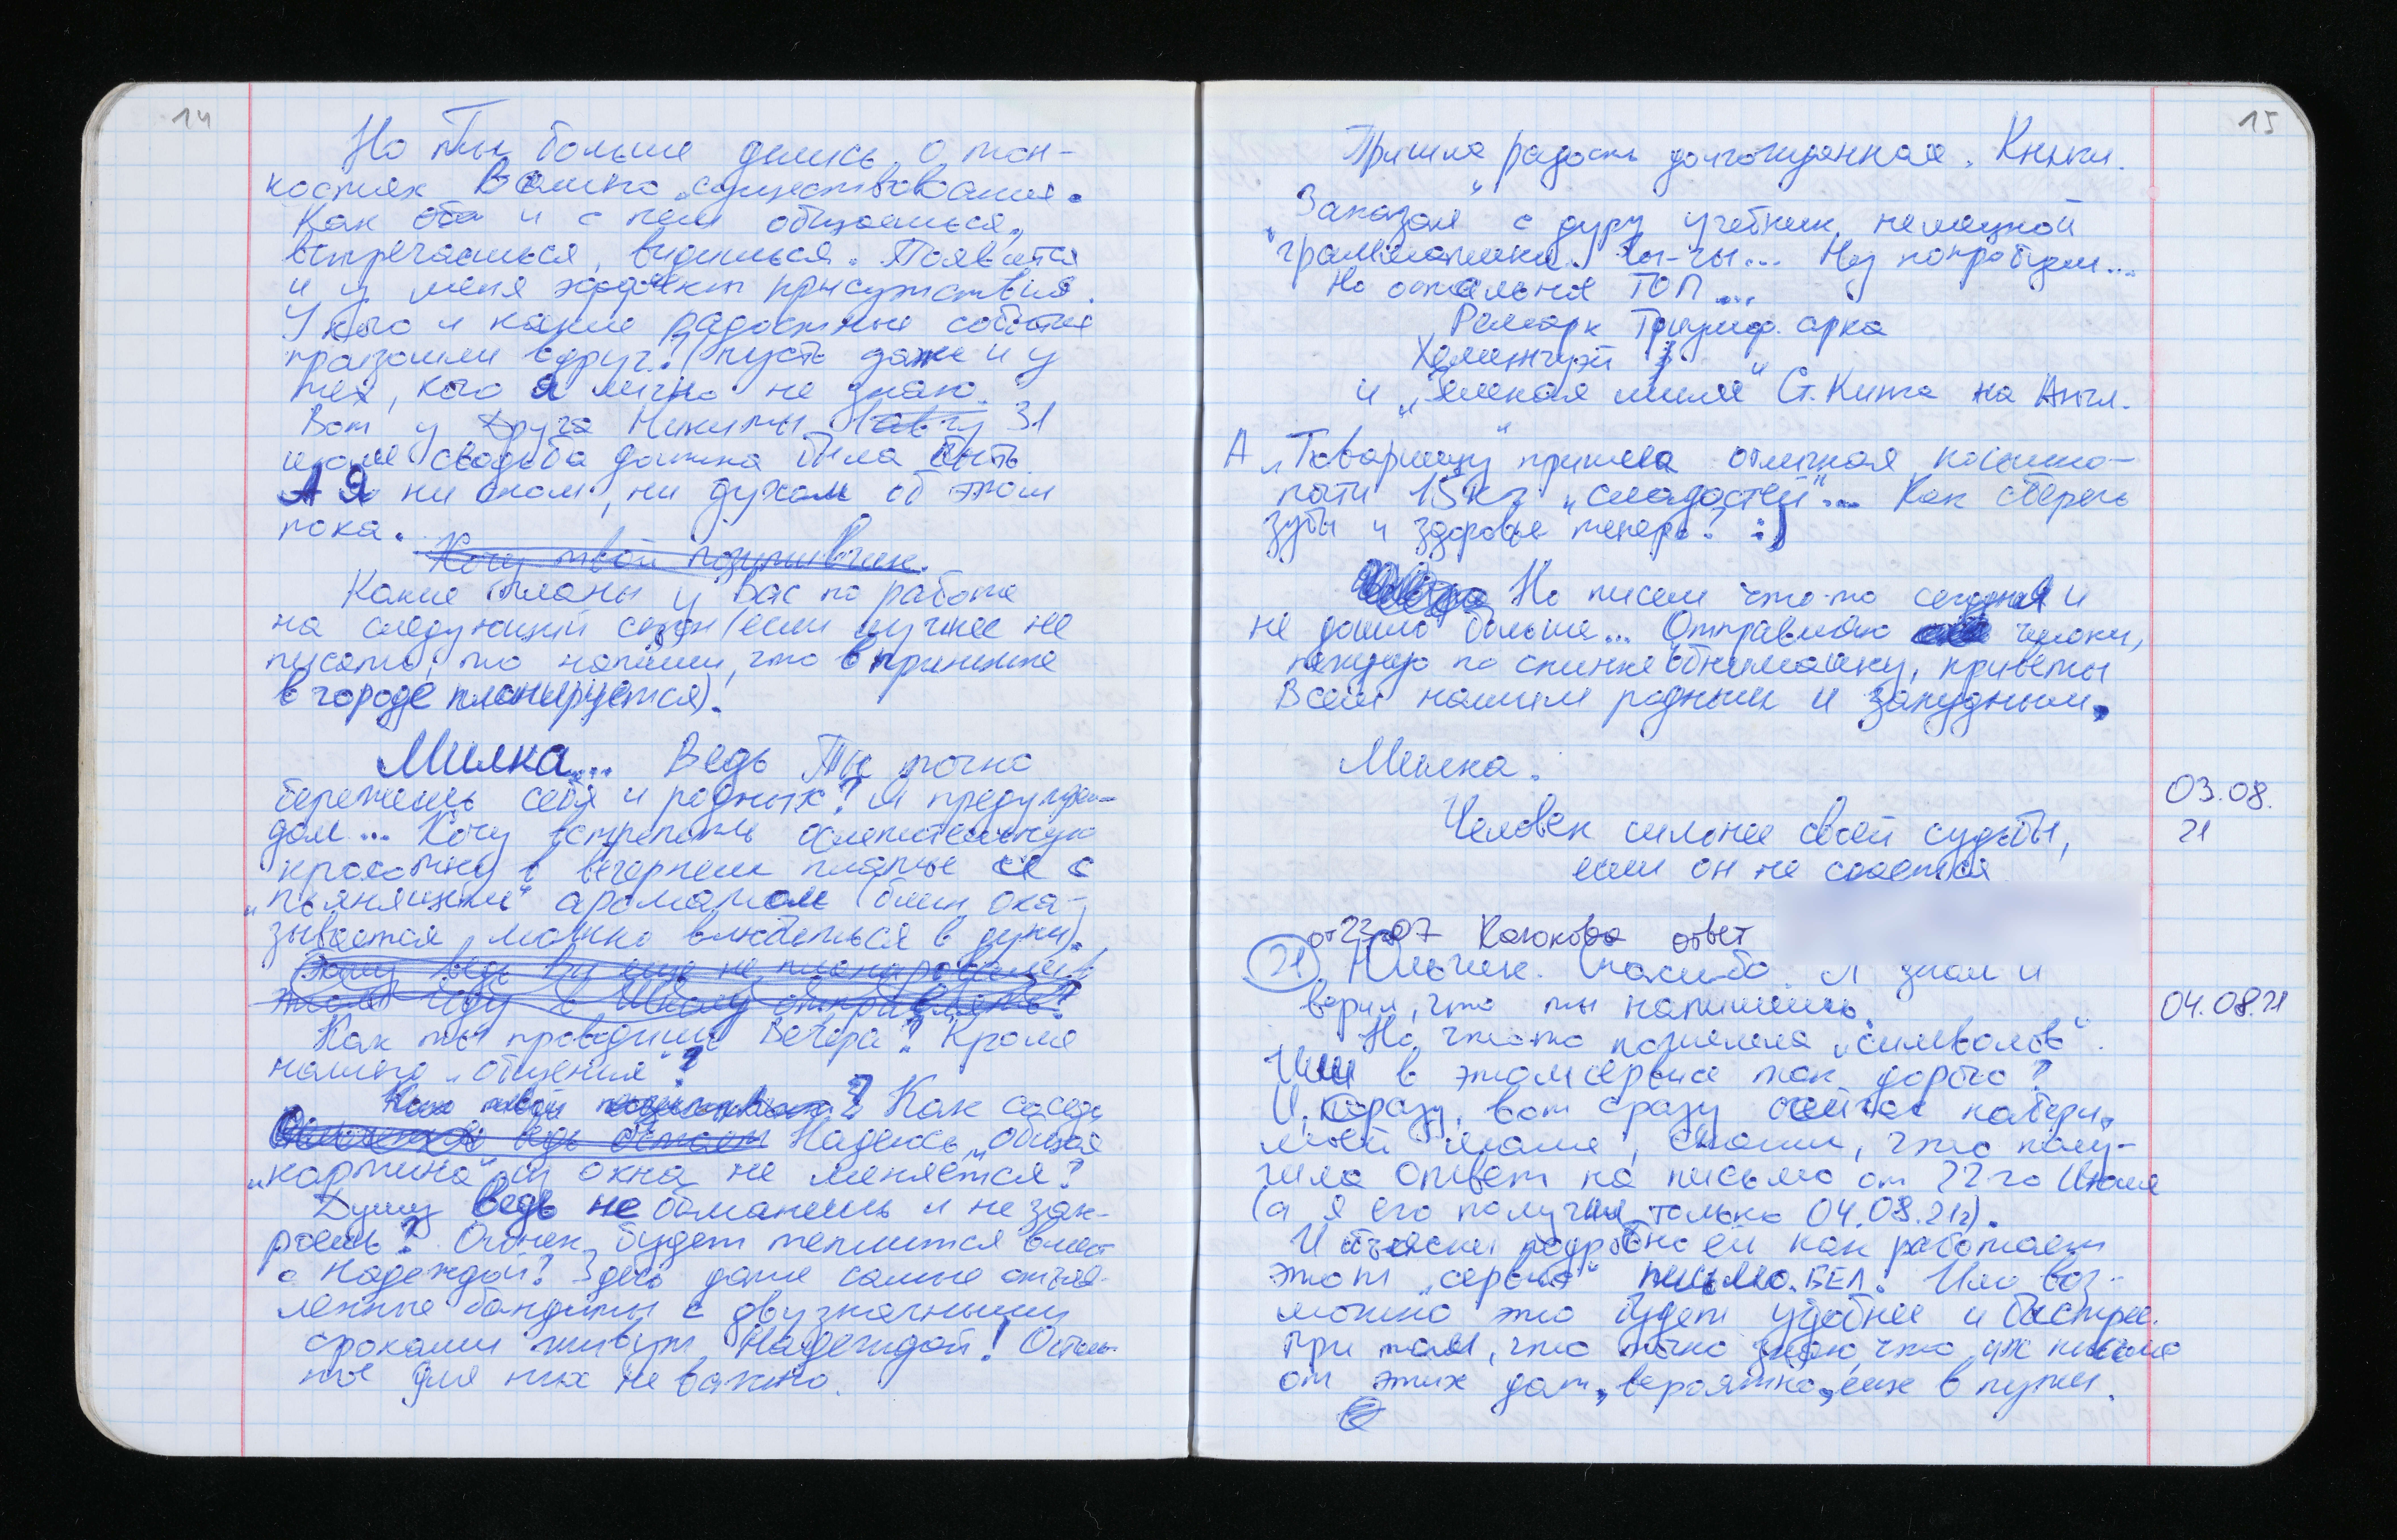 14
Но Ты больше делись о тон-
костях Вашего существования.
Как и с кем общаешься,
встречаешься, видишься. Появится
и у меня эффект присутствия.
У кого и какие радостные события
произошли вдруг? (пусть даже и у
тех, кого я лично не знаю.
Вот у Друга Никиты 31
июля свадьба должна была быть.
А Я ни сном, ни духом об этом
пока.
Хочу твой позитивчик.
Какие планы у Вас по работе
на следующий сезон (если лучше не
писать, то напиши, что в принципе
в городе планируется).
Милка... Ведь Ты точно
бережешь себя и родных? Я предупреж-
дал... Хочу встретить ослепительную
красотку в вечернем платье и с
„пьянящим" ароматом (блин, ока-
зывается, можно влюбиться в духи).
Как ты проводишь Вечера? Кроме
нашего „общения"?
Как соседи
Надеюсь, общая
„картина" из окна не меняется?
Душу ведь не обманешь и не зак-
роешь? Огонек будет теплится вмест
с Надеждой? Здесь даже самые отъяв-
ленные бандиты с двузначными
сроками живут Надеждой! Осталь-
ное для них не важно.
15
Пришла радость долгожданная. Книги.
Заказал с дуру учебник немецкой
"грамматики". Ы-гы... Ну попробуем...
Но остальное ТОП...
Ремарк Триумф. арка
Хемингуэй
и „Зеленая миля" Ст. Кинга на Англ.
А „Товарищу" пришла отличная посылка -
почти 15 кг „сладостей"... Как сберечь
зубы и здоровье теперь? :)
Но писем что-то сегодня и
не дошло больше... Отправляю чмоки,
нежную по спинке обнимашку, приветы
Всем нашим родным и занудным.
Милка.
03.08.
21
Человек сильнее своей судьбы,
если он не сдается.
от 23.07 Казакова ответ
21 Юльчик. Спасибо. Я знал и
верил, что ты напишешь.
04.08.21
Но, что-то пожалела „символов".
Или в этом сервисе так дорого?
И, сразу, вот сразу сейчас набери,
моей маме, скажи, что полу-
чила ответ на письмо от 22го Июля
(а я его получил только 04.08.21г).
И объясни подробно ей как работает
этот „сервис" письмо.БЕЛ. Или воз-
можно это будет удобнее и быстрее.
При том, что точно знаю, что их письмо
от этих дат, вероятно, еще в пути.